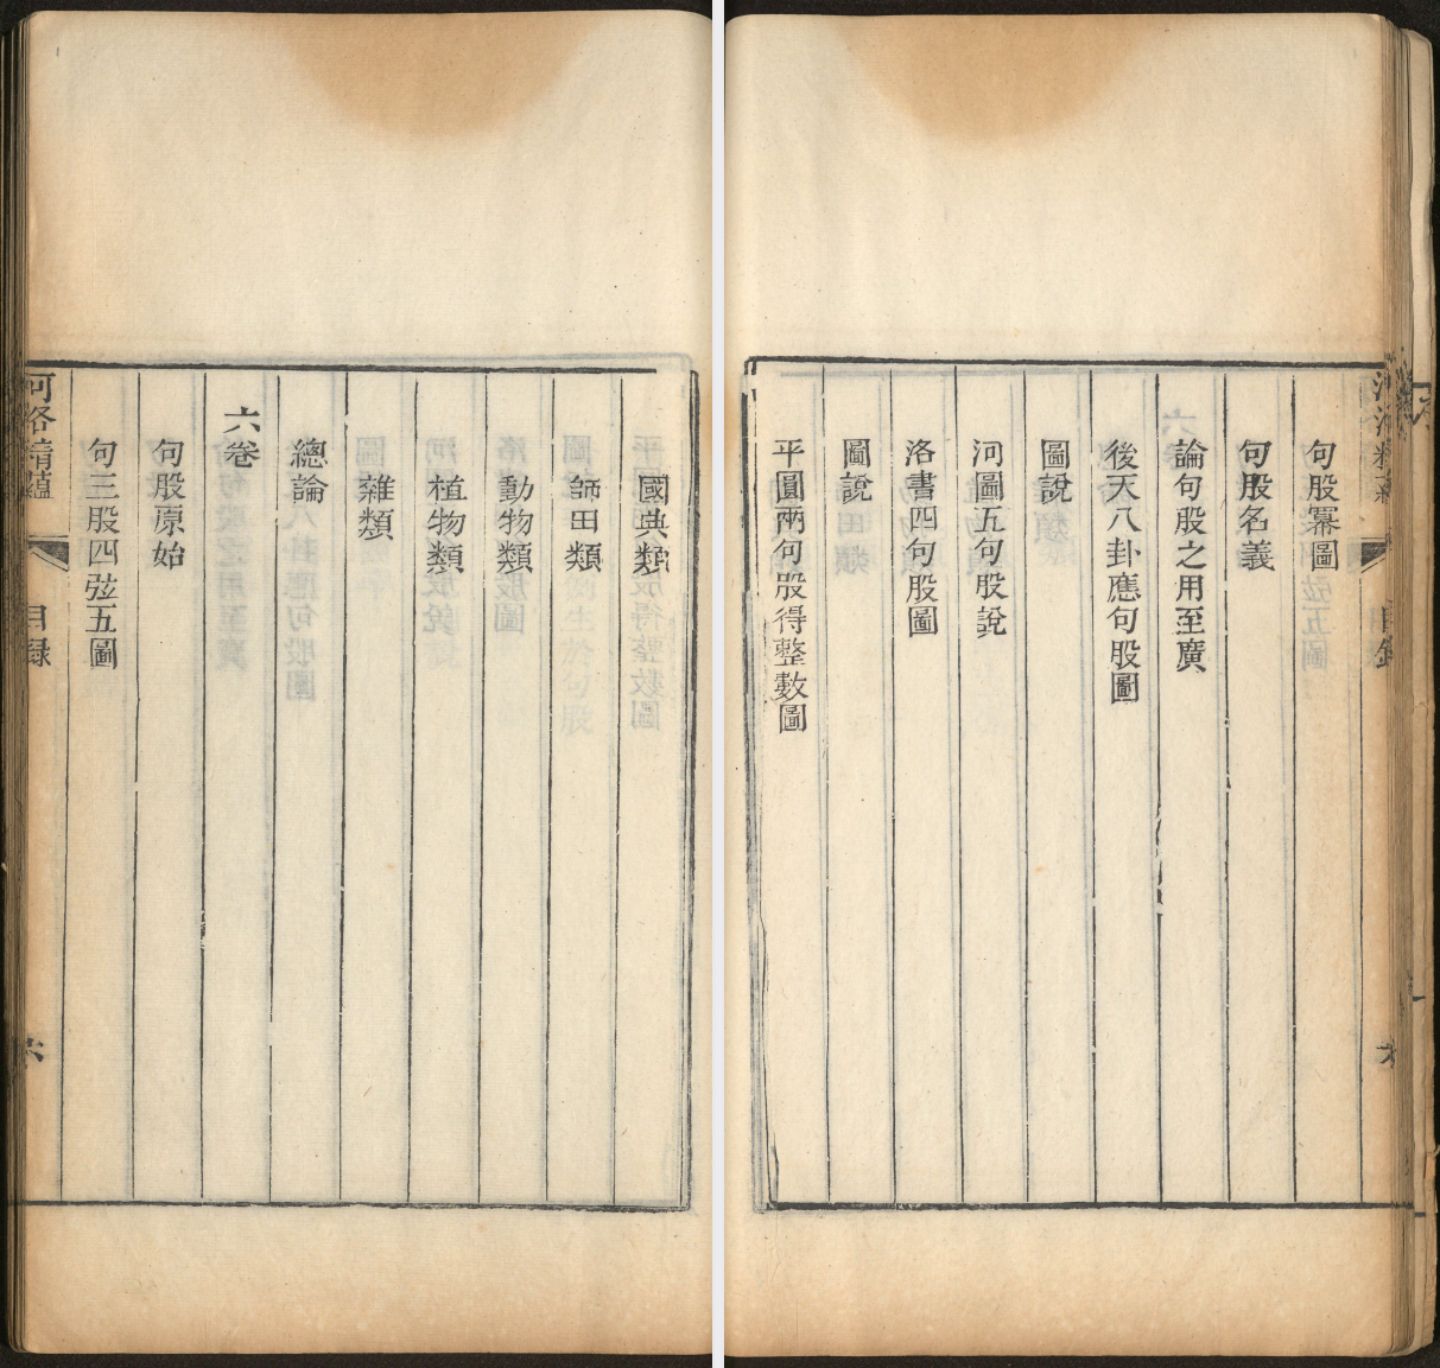 國典類
師田類
動物類
植物類
雜類
總論
六卷
句股原始
句三股四弦五圖
河洛精蘊 目録 六
句股冪圖
句股名義
論句股之用至廣
後天八卦應句股圖
圖說
河圖五句股說
洛書四句股圖
圖說
平圓兩句股得整數圖